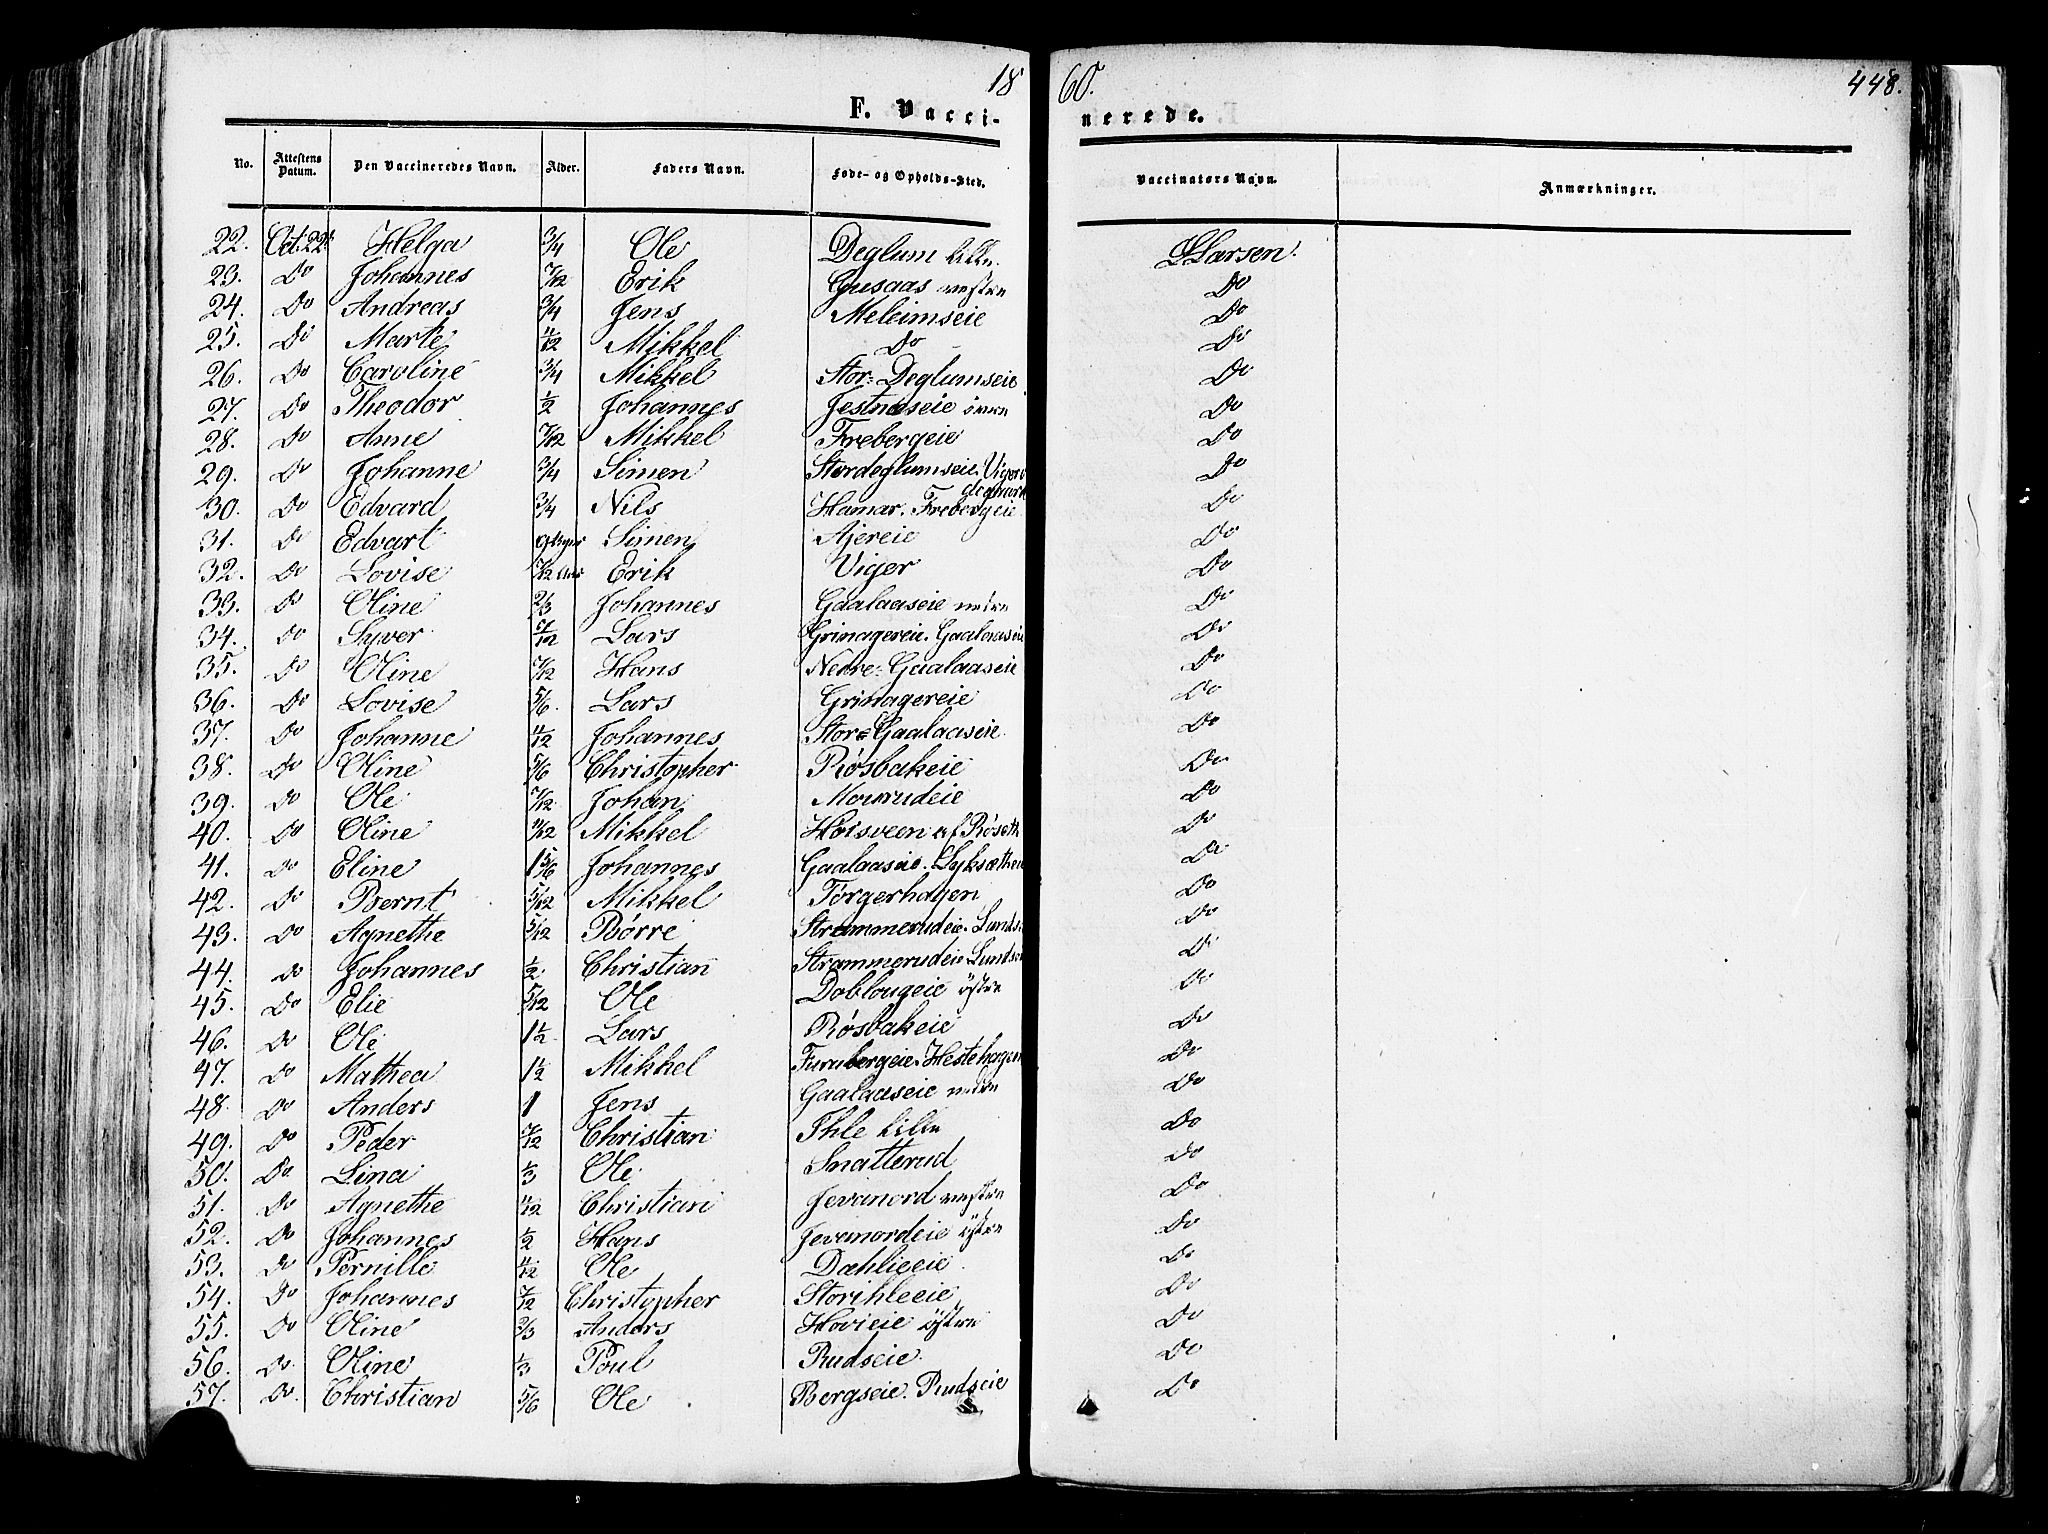 1860. 448.
F. Vaccinerede.
No. Attestens Datum. Den Vaccineredes Navn. Alder. Faders Navn. Føde- og Opholds-Sted. Vaccinators Navn. Anmærkninger.
22. Oct. 22. Helga 3/4 Ole Deglum lille. Larsen.
23. Do Johannes 7/12 Erik Gusaas vestre Do
24. Do Andreas 3/4 Jens Meleimseie Do
25. Do Marte 4/12 Mikkel Do Do
26. Do Caroline 3/4 Mikkel Stor-Deglumseie Do
27. Do Theodor 1/2 Johannes Jestnæseie övre Do
28. Do Anne 7/12 Mikkel Frebergeie Do
29. Do Johanne 3/4 Simen Stordeglumseie. Do
30. Do Edvard 3/4 Nils Hamar. Frebergeie Do
31. Do Edvart Simen Ajereie Do
32. Do Lovise 7/12 Erik Viger Do
33. Do Oline 2/3 Johannes Gaalaaseie nedre Do
34. Do Syver 7/12 Lars Grinagereie. Gaalaaseie Do
35. Do Oline 7/12 Hans Nedre-Gaalaaseie Do
36. Do Lovise 5/6. Lars Grinagereie Do
37. Do Johanne 4/12 Johannes Stor-Gaalaaseie Do
38. Do Oline 5/6 Christopher Røsbakeie Do
39. Do Ole 7/12 Johan Do
40. Do Oline 11/12 Mikkel Hoisveen af Røseth Do
41. Do Eline 1 5/6 Johannes Gaalaaseie. Do
42. Do Bernt 5/12 Mikkel Torgerhagen Do
43. Do Agnethe 5/12 Børre Strammerudeie. Do
44. Do Johannes 1/2. Christian Strammerudeie Do
45. Do Elie 5/12 Ole Doblougeie östre Do
46. Do Ole 1 1/2 Lars Røsbakeie Do
47. Do Mathea 1 1/2 Mikkel Furubergeie. Hestehagen Do
48. Do Anders 1 Jens Gaalaaseie nedre Do
49. Do Peder 7/12 Christian Ihle lille Do
50. Do Lina 1/3 Ole Snatterud Do
51. Do Agnethe 4/12 Christian Jevanord vestre Do
52. Do Johannes 1/2 Hans Jevanordeie östre Do
53. Do Pernille 4/12 Ole Dæhlieeie Do
54. Do Johannes 7/12 Christopher Storihleeie Do
55. Do Oline 2/3 Anders Hovieie östre Do
56. Do Oline 1/3 Poul Rudseie. Do
57. Do. Christian 5/6 Ole Bergseie. Rudseie Do